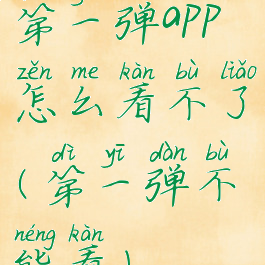 第一弹app
zěn me kàn bù liǎo
怎么看不了
dì yī dàn bù
(第一弹不
néng kàn
能看)